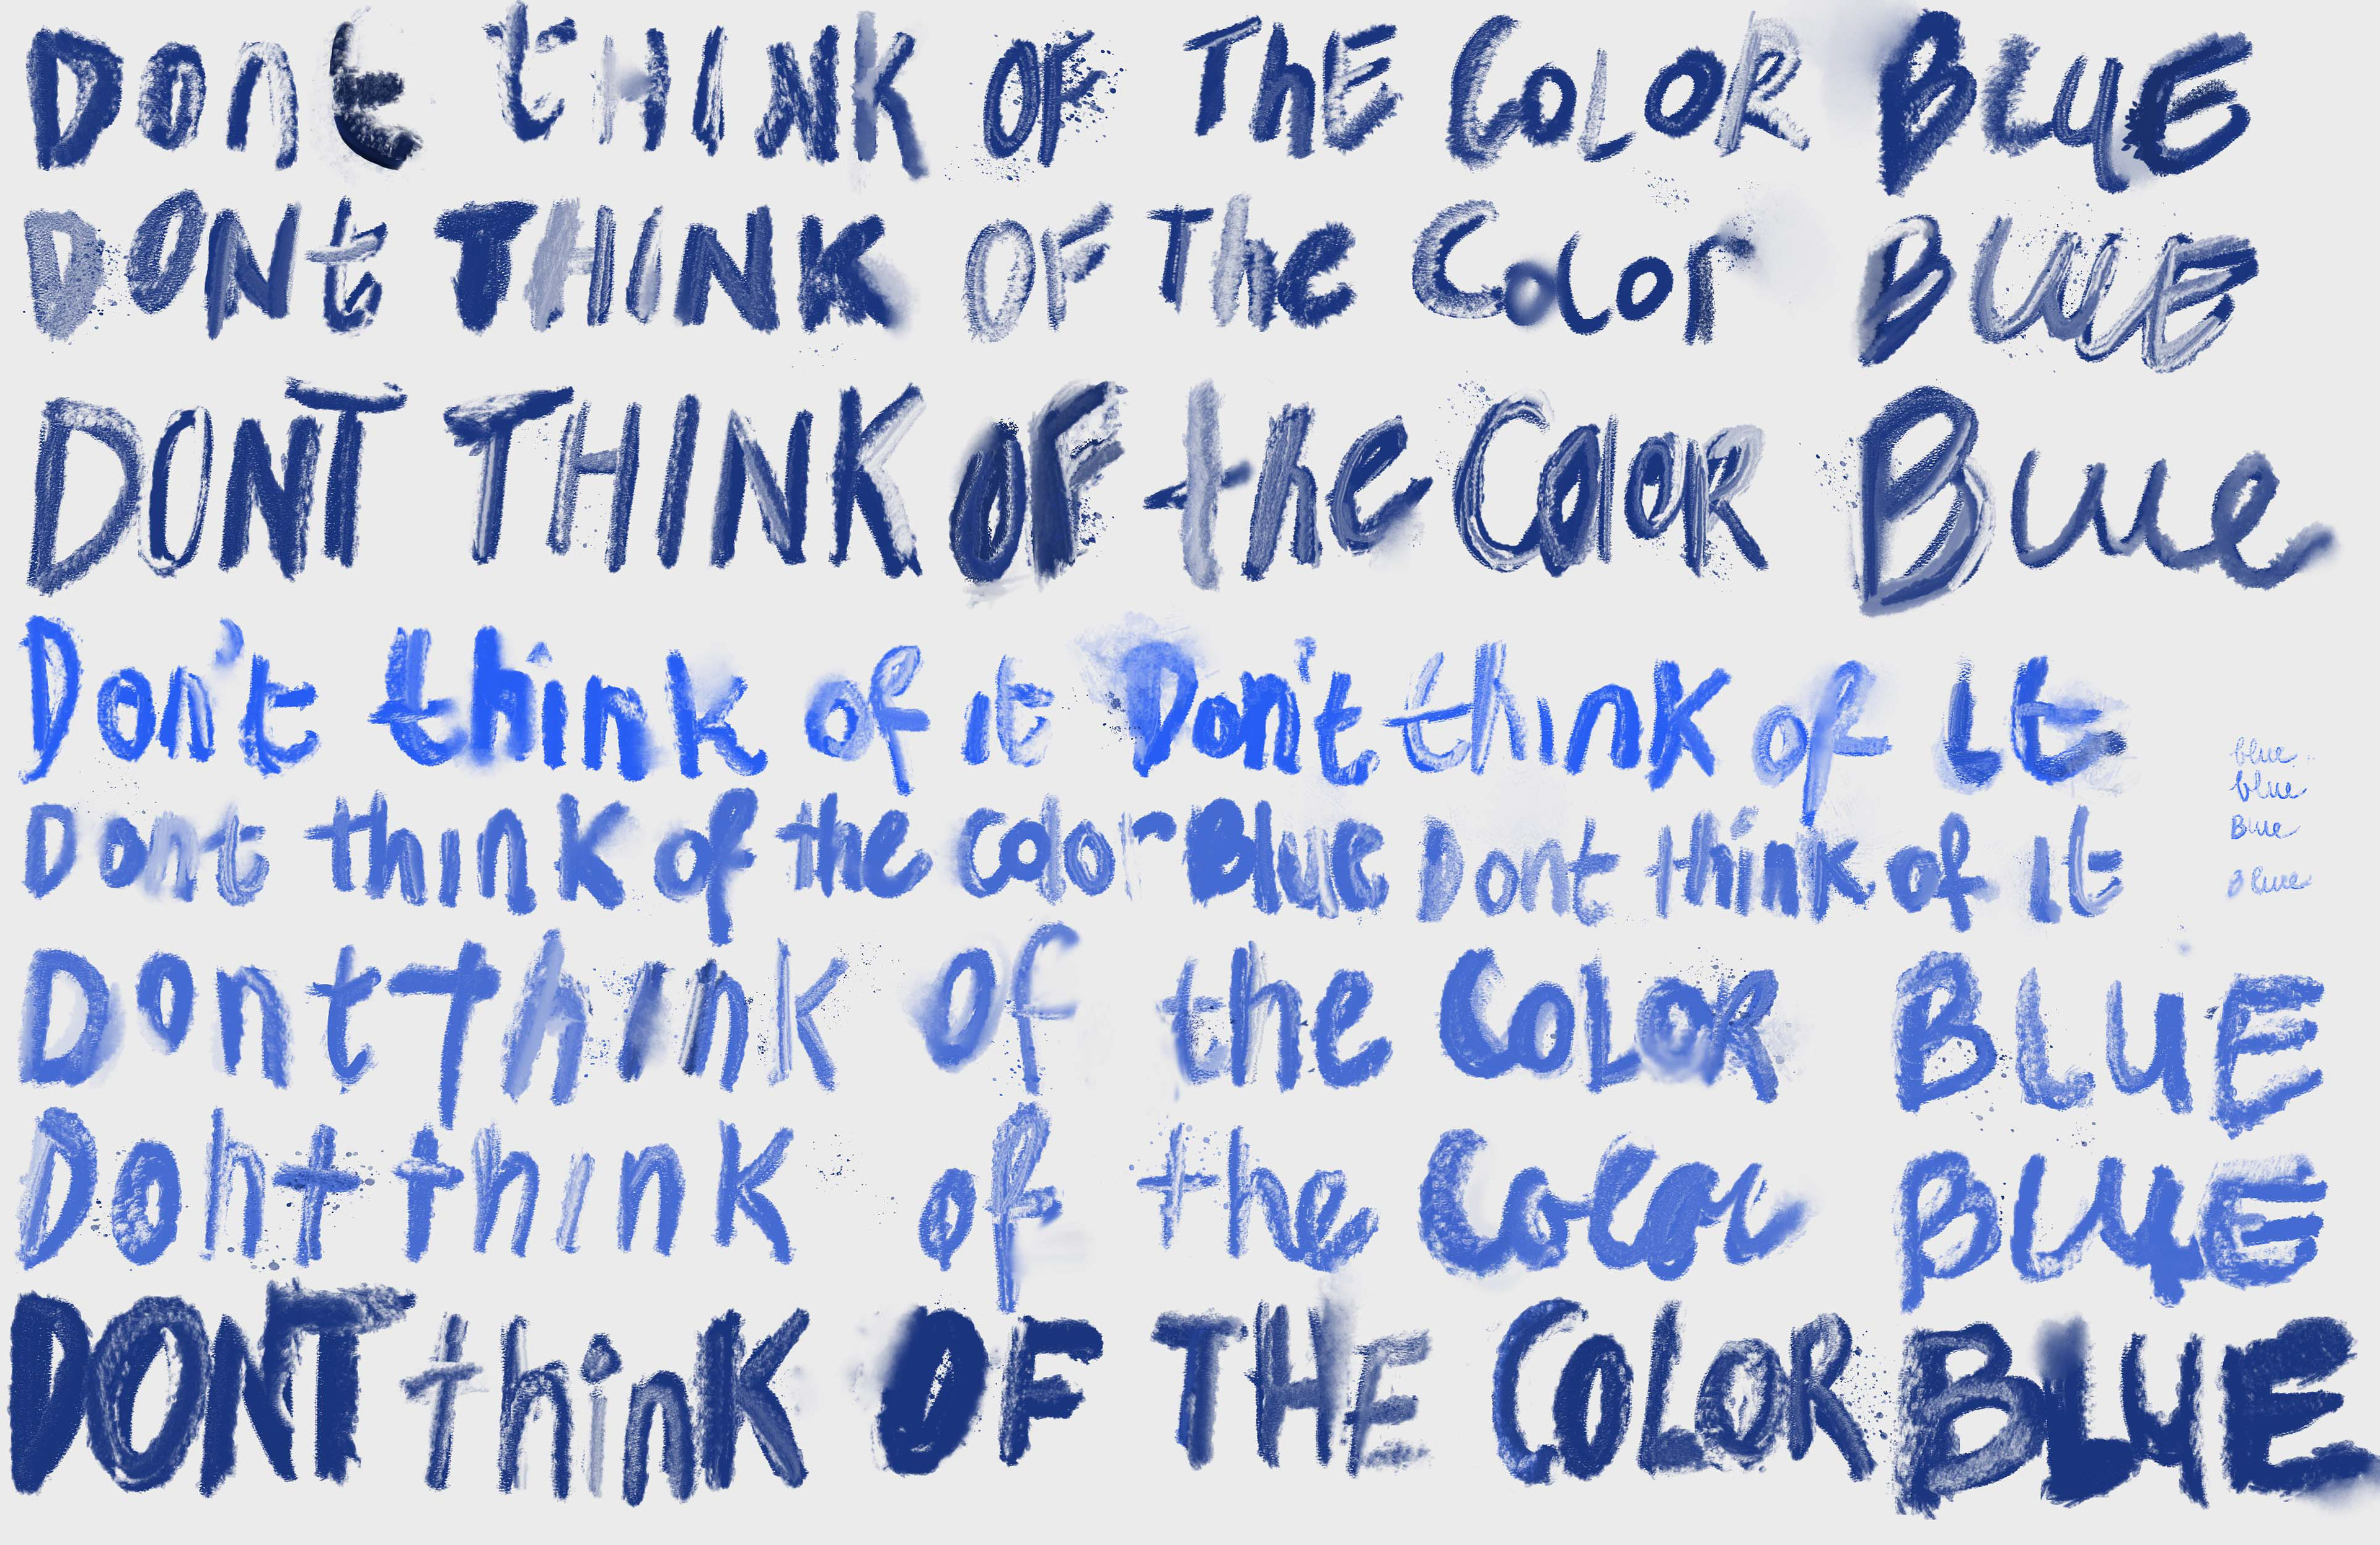 Dont tHINK OF ThE CoLOR BLUE
DONt THINK OF The Color BLUE
DONT THINK OF the ColoR Blue
Don't think of it Don't think of it
blue
blue
Blue
Dont think of the color Blue Dont think of it
Blue
Dont Think of the CoLOR BLUE
Dont think of the Color BLUE
DONT think OF THE COLOR BLUE